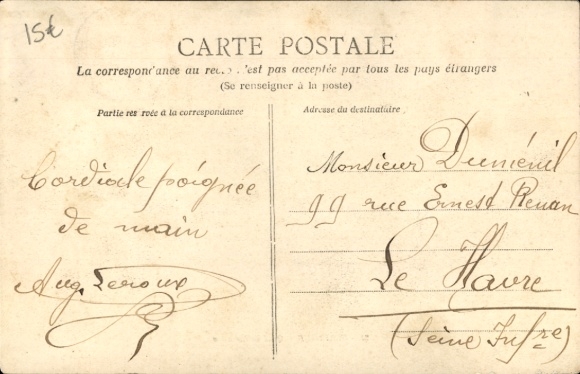 15€
CARTE POSTALE
La correspondance au recto n'est pas acceptée par tous les pays étrangers
(Se renseigner à la poste)
Partie réservée à la correspondance
Adresse du destinataire
Cordiale poignée
de main
Aug. Leroux
Monsieur Duménil
99 rue Ernest Renan
Le Havre
(Seine Infre)